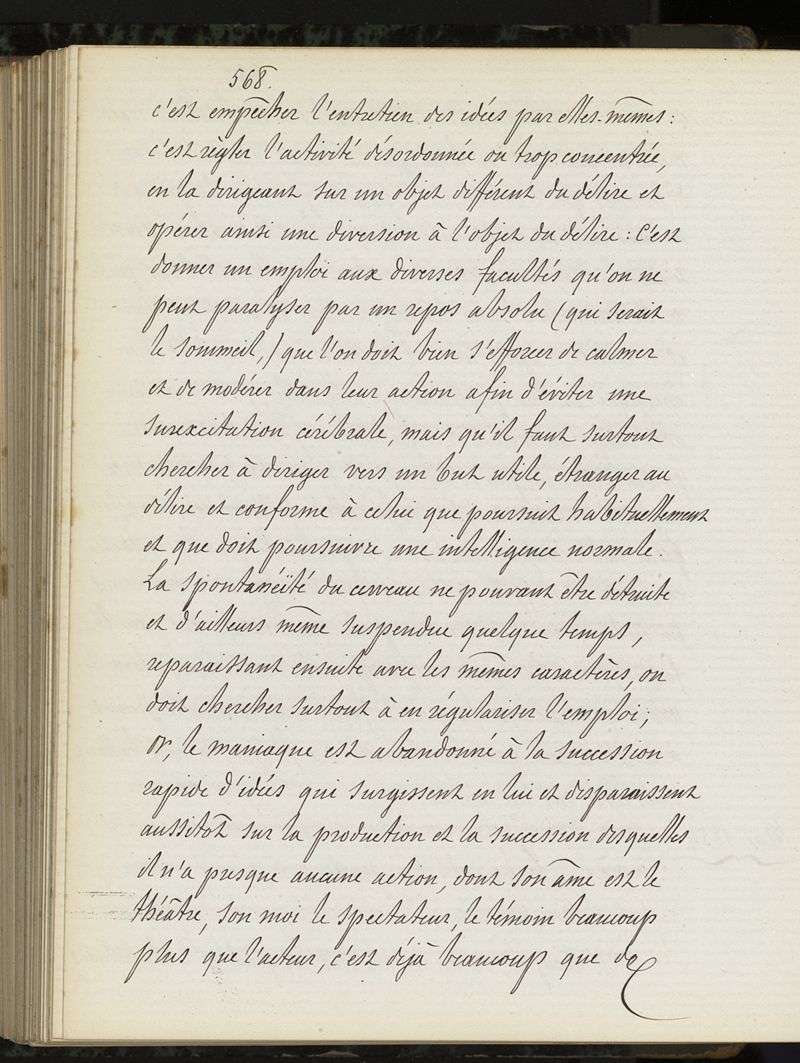 568.
c'est empêcher l'entretien des idées par elles-mêmes :
c'est règler l'activité désordonnée ou trop concentrée,
en la dirigeant sur un objet différent du délire et
opérer ainsi une diversion à l'objet du délire : C'est
donner un emploi aux diverses facultés qu'on ne
peut paralyser par un repos absolu (qui serait
le sommeil,) que l'on doit bien s'efforcer de calmer
et de modérer dans leur action afin d'éviter une
surexcitation cérébrale, mais qu'il faut surtout
chercher à diriger vers un but utile, étranger au
délire et conforme à celui que poursuit habituellement
et que doit poursuivre une intelligence normale.
La spontanéïté du cerveau ne pouvant être détruite
et d'ailleurs même suspendue quelque temps,
reparaissant ensuite avec les mêmes caractères, on
doit chercher surtout à en régulariser l'emploi ;
or, le maniaque est abandonné à la succession
rapide d'idées qui surgissent en lui et disparaissent
aussitôt sur la production et la succession desquelles
il n'a presque aucune action, dont son âme est le
théâtre, son moi le spectateur, le témoin beaucoup
plus que l'acteur, c'est déjà beaucoup que de